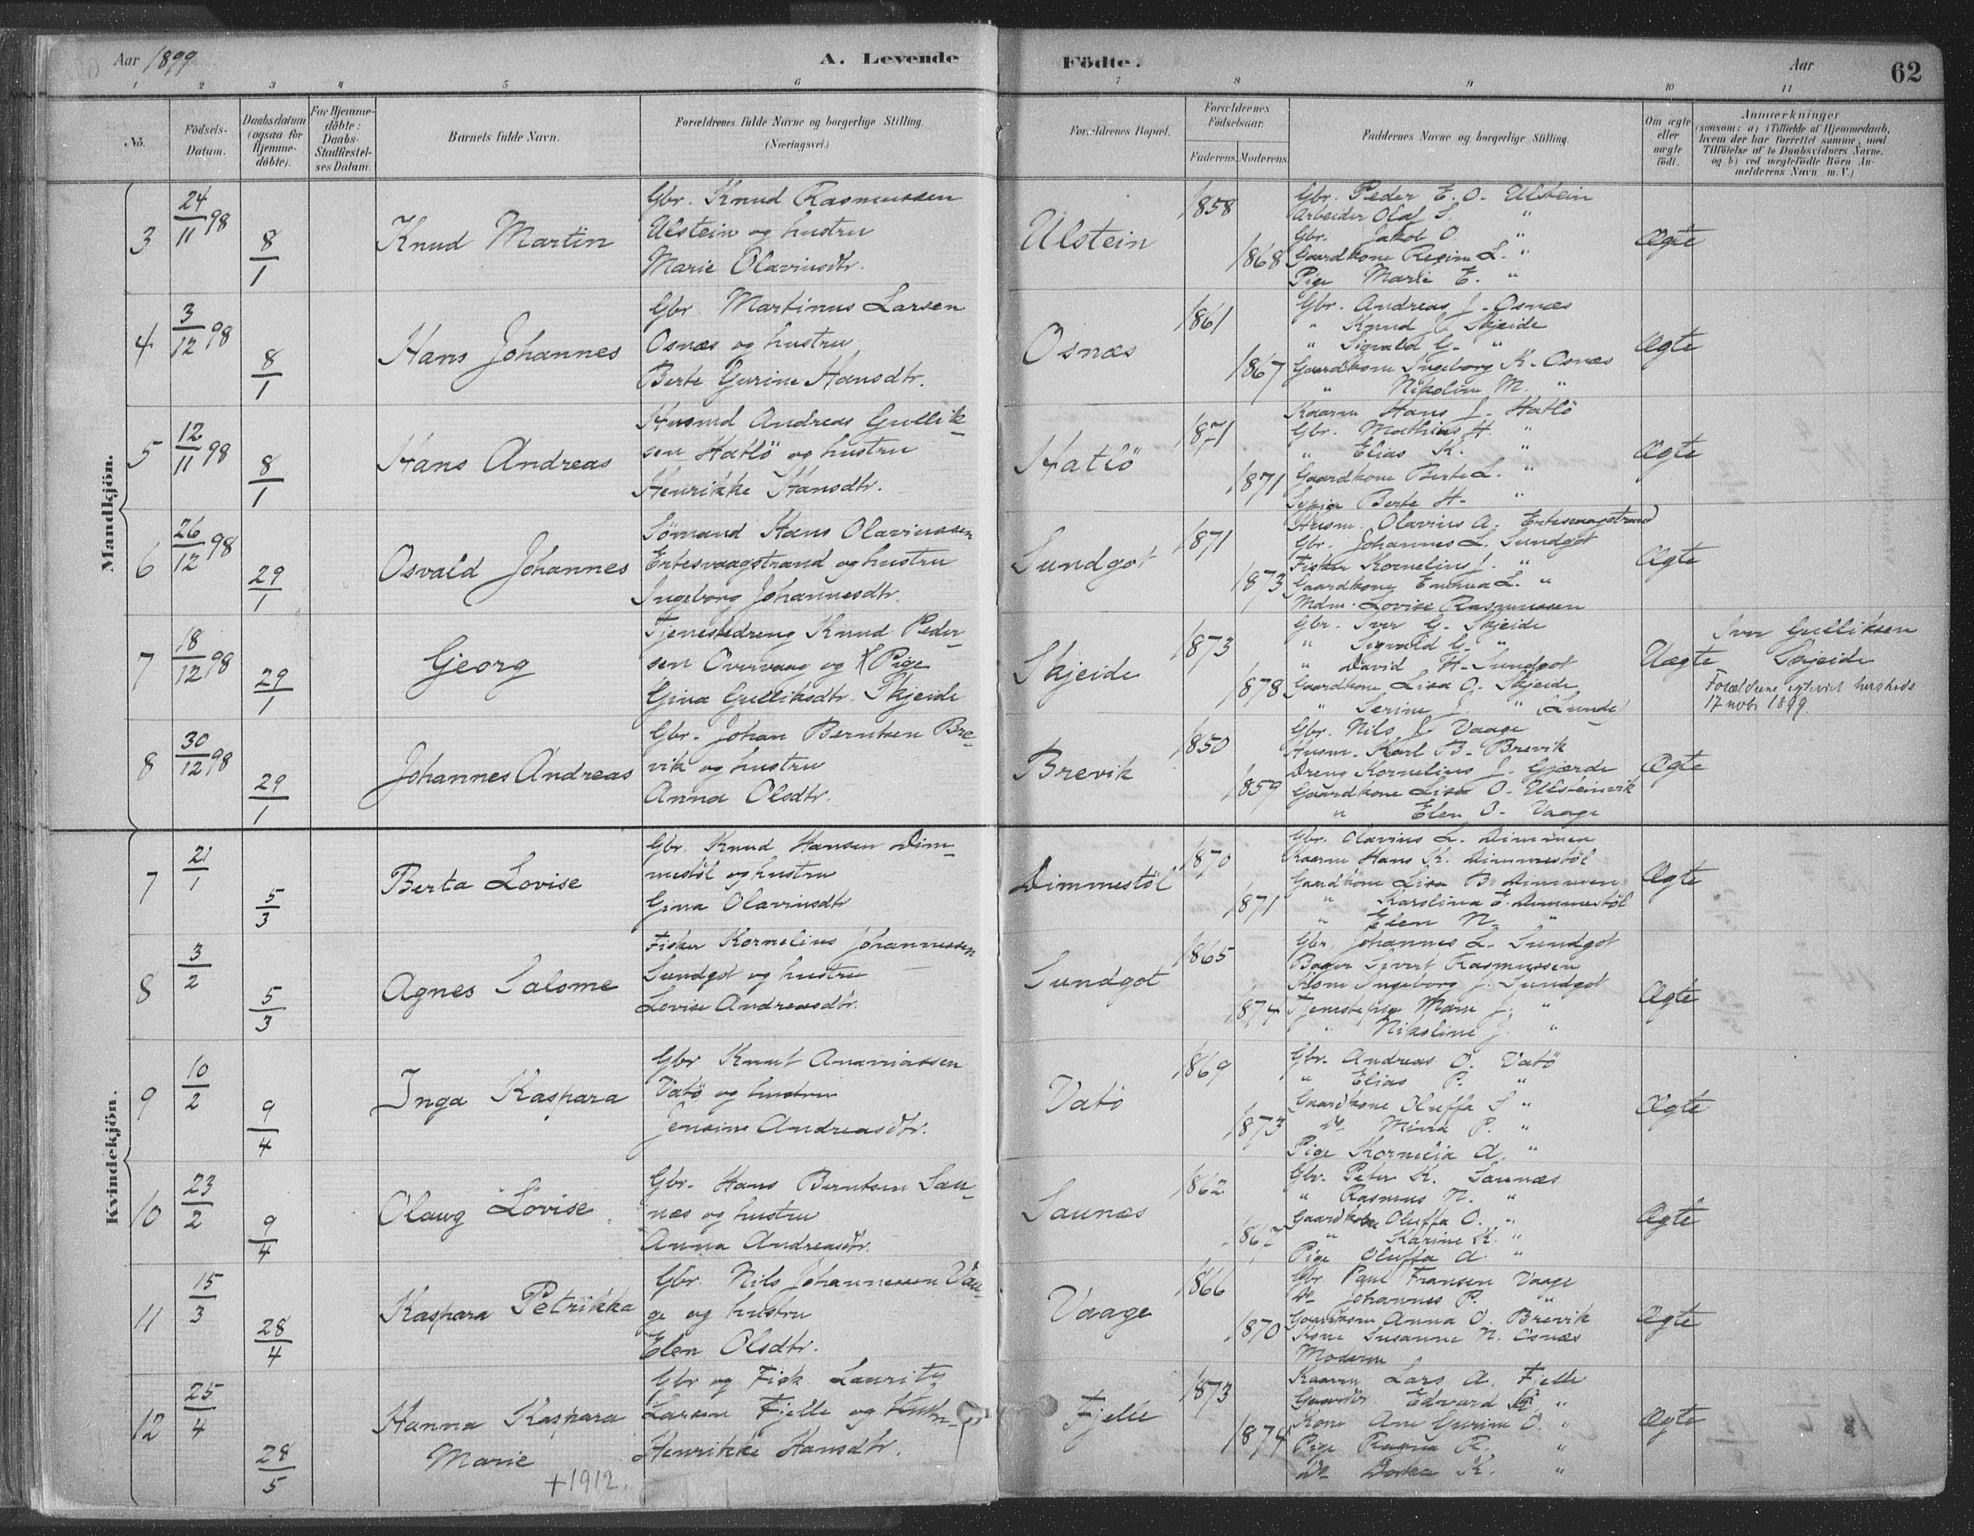 Aar 1899
A. Levende Födte.
Aar
62
1 2 3 4 5 6 7 8 9 10 11
No.
Födsels-Datum.
Daabsdatum (ogsaa for Hjemme-döbte).
For Hjemme-döbte: Daabs-Stadfæstel-ses Datum.
Barnets fulde Navn.
Forældrenes fulde Navne og borgerlige Stilling. (Næringsvei.)
Forældrenes Bopæl.
Forældrenes Födselsaar.
Faderens. Moderens.
Faddernes Navne og borgerlige Stilling.
Om ægte eller uægte födt.
Anmærkninger
(saasom: a) i Tilfælde af Hjemmedaab,
hvem der har forrettet samme, med
Tilföielse af to Daabsvidners Navne,
og b) ved uægtefödte Börn An-
melderens Navn m. V.)
Mandkjön.
3 24/11 98 8/1 Knud Martin
Gbr. Knud Rasmussen
Ulstein og hustru
Marie Olavinsdtr.
Ulstein 1858 1868
Gbr. Peder E. O. Ulstein
Arbeider Olaf S. "
Gbr. Jakob O "
Gaardkone Regine L. "
Pige Marie E. "
Ægte
4 3/12 98 8/1 Hans Johannes
Gbr. Martinus Larsen
Osnæs og hustru
Berte Gurine Hansdtr.
Osnæs 1861 1867
Gbr. Andreas J. Osnæs
" Knud J. Skjeide
" Sigvald G. "
Gaardkone Ingeborg K. Osnæs
" Nikoline M. "
Ægte
5 12/11 98 8/1 Hans Andreas
Husmd Andreas Gullik-
sen Hatlö og hustru
Henrikke Hansdtr.
Hatlö 1871 1871
Kaarm Hans J. Hatlö
Gbr. Mathias H. "
" Elias K. "
Gaardkone Berte L. "
Berte H. "
Ægte
6 26/12 98 29/1 Osvald Johannes
Sömand Hans Olavinssen
Ertesvaagstrand og hustru
Ingeborg Johannesdtr.
Sundgot 1871 1873
Husm. Olavius A. Ertesvaagstrand
Gbr. Johannes L. Sundgot
Fisker Kornelius J. "
Gaardkone Emma L. "
Mdm. Lovise Rasmussen
Ægte
7 18/12 98 29/1 Georg
Tjenestedreng Knud Peder-
sen Overvaag og Pige
Gina Gulliksdtr. Skjeide
Skjeide 1873 1878
Gbr. Iver G. Skjeide
" Sigvald G. "
" David H. Sundgot
Gaardkone Lisa O. Skjeide
" Serine J. " (Lunde)
Uægte
Iver Gulliksen
Skjeide
Forældrene egteviet hersteds
17 nobr 1899.
8 30/12 98 29/1 Johannes Andreas
Gbr. Johan Berntsen Bre-
vik og hustru
Anna Olsdtr.
Brevik 1850 1859
Gbr. Nils J. Vaage
Husm. Karl B. Brevik
Dreng Kornelius J. Gjærde
Gaardkone Lisa O. Ulsteinvik
" Elen O. Vaage
Ægte
Kvindekjön.
7 21/1 5/3 Berta Lovise
Gbr. Knud Hansen Dim-
mestöl og hustru
Gina Olavinsdtr
Dimmestöl 1870 1871
Gbr. Olavius L. Dimmen
Kaarm Hans K. Dimmestöl
Gaardkone Lisa B. Dimmen
" Karolina E. Dimmestöl
" Elen N. "
Ægte
8 3/2 5/3 Agnes Salome
Fisker Kornelius Johannessen
Sundgot og hustru
Lovise Andreasdtr.
Sundgot 1865 1874
Gbr. Johannes L. Sundgot
Sivert Rasmussen
Ingeborg J. Sundgot
Tjenestepige Marie J. "
" Nikoline J. "
Ægte
9 10/2 9/4 Inga Kaspara
Gbr Knut Ananiassen
Vatö og hustru
Jensine Andreasdtr.
Vatö 1869 1873
Gbr. Andreas O. Vatö
" Elias P. "
Gaardkone Oluffa S "
Do Mina P. "
Pige Kornelia A. "
Ægte
10 23/2 9/4 Olaug Lovise
Gbr. Hans Berntsen Sau-
næs og hustru
Anna Andreasdtr.
Saunæs 1862 1867
Gbr. Peter K. Saunæs
" Rasmus N. "
Gaardkone Oluffa O. "
" Karine K. "
Pige Oluffa A. "
Ægte
11 15/3 28/4 Kaspara Petrikka
Gbr. Nils Johannessen Vaa-
ge og hustru
Elen Olsdtr.
Vaage 1866 1870
Gbr Paul Fransen Vaage
Do Johannes P. "
Anna O. Brevik
Kone Susanne N. Osnæs
Moderen
Ægte
12 25/4 28/5 Hanna Kaspara
Marie
+1912.
Gbr og Fisk. Laurits
Larsen Fjelle og hustru
Henrikke Hansdtr.
Fjelle 1873 1874
Kaarm Lars A. Fjelle
Edvard "
Kone Ane Gurine O. "
Pige R. "
Do K. "
Ægte